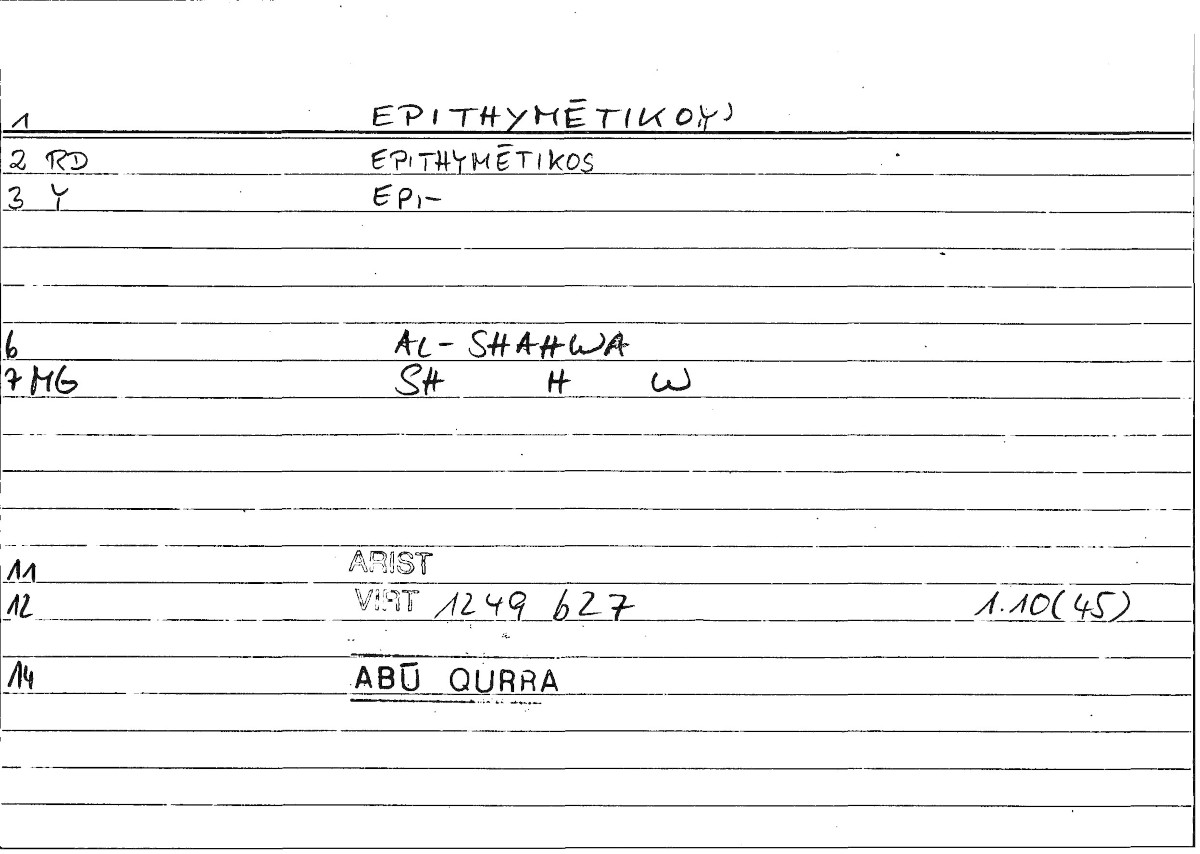 1 EPITHYMĒTIKOY)
2 RD EPITHYMĒTIKOS
3 Y EPI-
6 AL-SHAHWA
7 MG SH H W
11 ARIST
12 VIRT 1249 b27 1.10(45)
14 ABŪ QURRA